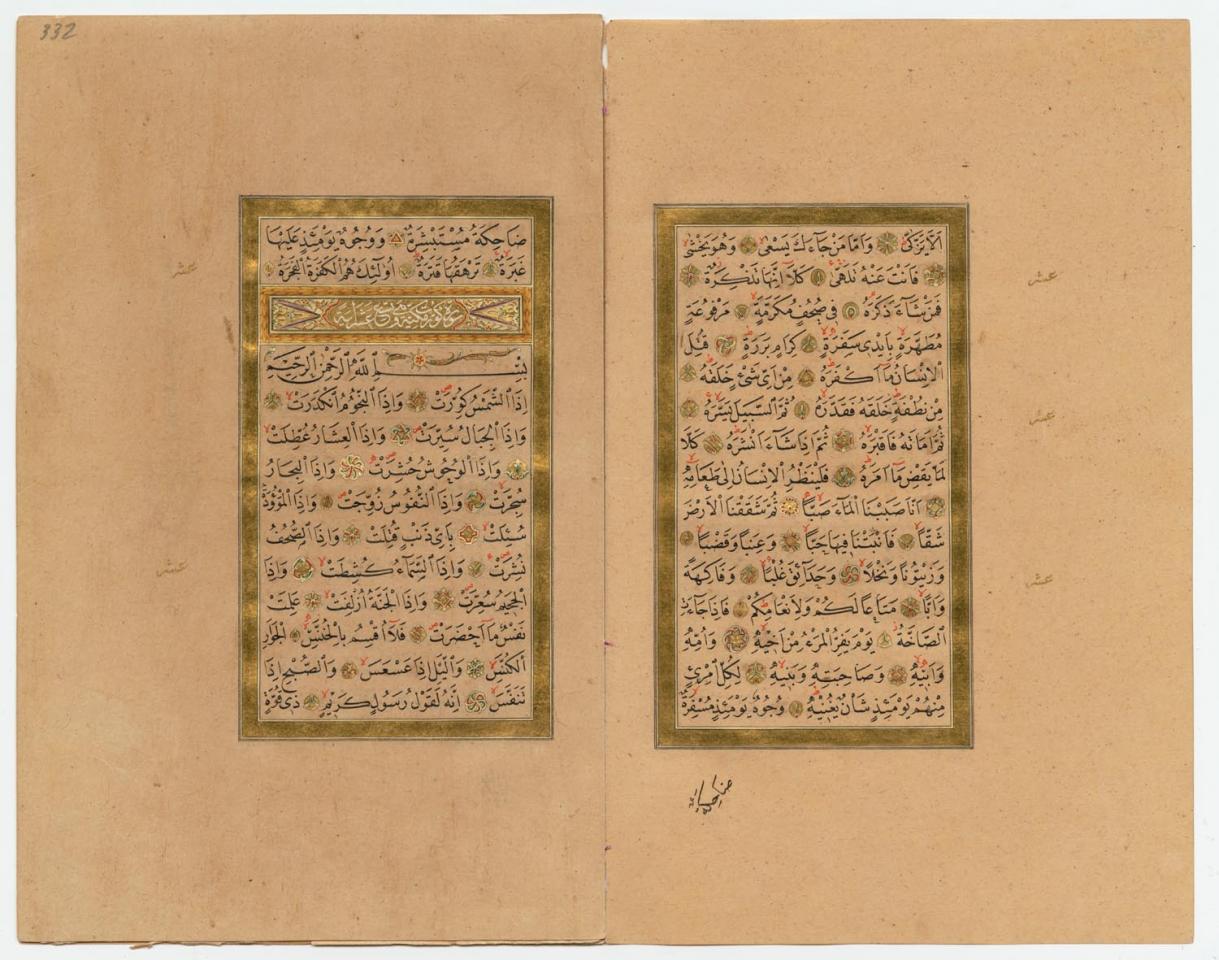 اَلَّا يَزَّكّٰى وَاَمَّا مَنْ جَاءَكَ يَسْعٰى وَهُوَ يَخْشٰى
فَاَنْتَ عَنْهُ تَلَهّٰى كَلَّا اِنَّهَا تَذْكِرَةٌ
فَمَنْ شَاءَ ذَكَرَهُ فِى صُحُفٍ مُكَرَّمَةٍ مَرْفُوعَةٍ
مُطَهَّرَةٍ بِاَيْدِى سَفَرَةٍ كِرَامٍ بَرَرَةٍ قُتِلَ
الْاِنْسَانُ مَا اَكْفَرَهُ مِنْ اَىِّ شَىْءٍ خَلَقَهُ
مِنْ نُطْفَةٍ خَلَقَهُ فَقَدَّرَهُ ثُمَّ السَّبِيلَ يَسَّرَهُ
ثُمَّ اَمَاتَهُ فَاَقْبَرَهُ ثُمَّ اِذَا شَاءَ اَنْشَرَهُ كَلَّا
لَمَّا يَقْضِ مَا اَمَرَهُ فَلْيَنْظُرِ الْاِنْسَانُ اِلٰى طَعَامِهِ
اَنَّا صَبَبْنَا الْمَاءَ صَبًّا ثُمَّ شَقَقْنَا الْاَرْضَ
شَقًّا فَاَنْبَتْنَا فِيهَا حَبًّا وَعِنَبًا وَقَضْبًا
وَزَيْتُونًا وَنَخْلًا وَحَدَائِقَ غُلْبًا وَفَاكِهَةً
وَاَبًّا مَتَاعًا لَكُمْ وَلِاَنْعَامِكُمْ فَاِذَا جَاءَتِ
الصَّاخَّةُ يَوْمَ يَفِرُّ الْمَرْءُ مِنْ اَخِيهِ وَاُمِّهِ
وَاَبِيهِ وَصَاحِبَتِهِ وَبَنِيهِ لِكُلِّ امْرِئٍ
مِنْهُمْ يَوْمَئِذٍ شَاْنٌ يُغْنِيهِ وُجُوهٌ يَوْمَئِذٍ مُسْفِرَةٌ
ضاحكة
عشر
عشر
عشر
332
ضَاحِكَةٌ مُسْتَبْشِرَةٌ وَوُجُوهٌ يَوْمَئِذٍ عَلَيْهَا
غَبَرَةٌ تَرْهَقُهَا قَتَرَةٌ اُولٰئِكَ هُمُ الْكَفَرَةُ الْفَجَرَةُ
بِسْمِ اللّٰهِ الرَّحْمٰنِ الرَّحِيمِ
اِذَا الشَّمْسُ كُوِّرَتْ وَاِذَا النُّجُومُ انْكَدَرَتْ
وَاِذَا الْجِبَالُ سُيِّرَتْ وَاِذَا الْعِشَارُ عُطِّلَتْ
وَاِذَا الْوُحُوشُ حُشِرَتْ وَاِذَا الْبِحَارُ
سُجِّرَتْ وَاِذَا النُّفُوسُ زُوِّجَتْ وَاِذَا الْمَوْؤُدَةُ
سُئِلَتْ بِاَىِّ ذَنْبٍ قُتِلَتْ وَاِذَا الصُّحُفُ
نُشِرَتْ وَاِذَا السَّمَاءُ كُشِطَتْ وَاِذَا
الْجَحِيمُ سُعِّرَتْ وَاِذَا الْجَنَّةُ اُزْلِفَتْ عَلِمَتْ
نَفْسٌ مَا اَحْضَرَتْ فَلَا اُقْسِمُ بِالْخُنَّسِ الْجَوَارِ
الْكُنَّسِ وَالَّيْلِ اِذَا عَسْعَسَ وَالصُّبْحِ اِذَا
تَنَفَّسَ اِنَّهُ لَقَوْلُ رَسُولٍ كَرِيمٍ ذِى قُوَّةٍ
عشر
عشر